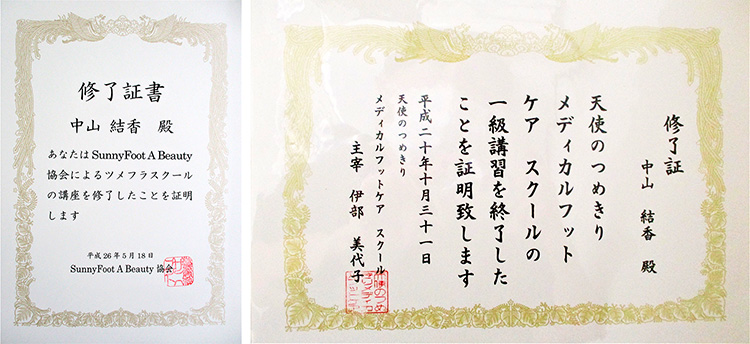 修了証書
中山 結香 殿
あなたは SunnyFoot A Beauty
協会によるツメフラスクール
の講座を修了したことを証明
します
平成 26 年 5 月 18 日
SunnyFoot A Beauty 協会
修了証
中山 結香 殿
天使のつめきり
メディカルフット
ケア スクールの
一級講習を終了した
ことを証明致します
平成二十年十月三十一日
天使のつめきり
メディカルフットケア スクール
主宰 伊部 美代子